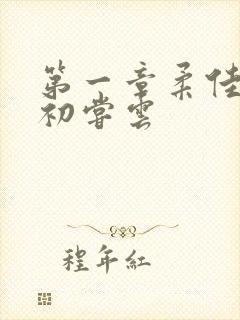 第一章柔佳
初尝雲
程年紅